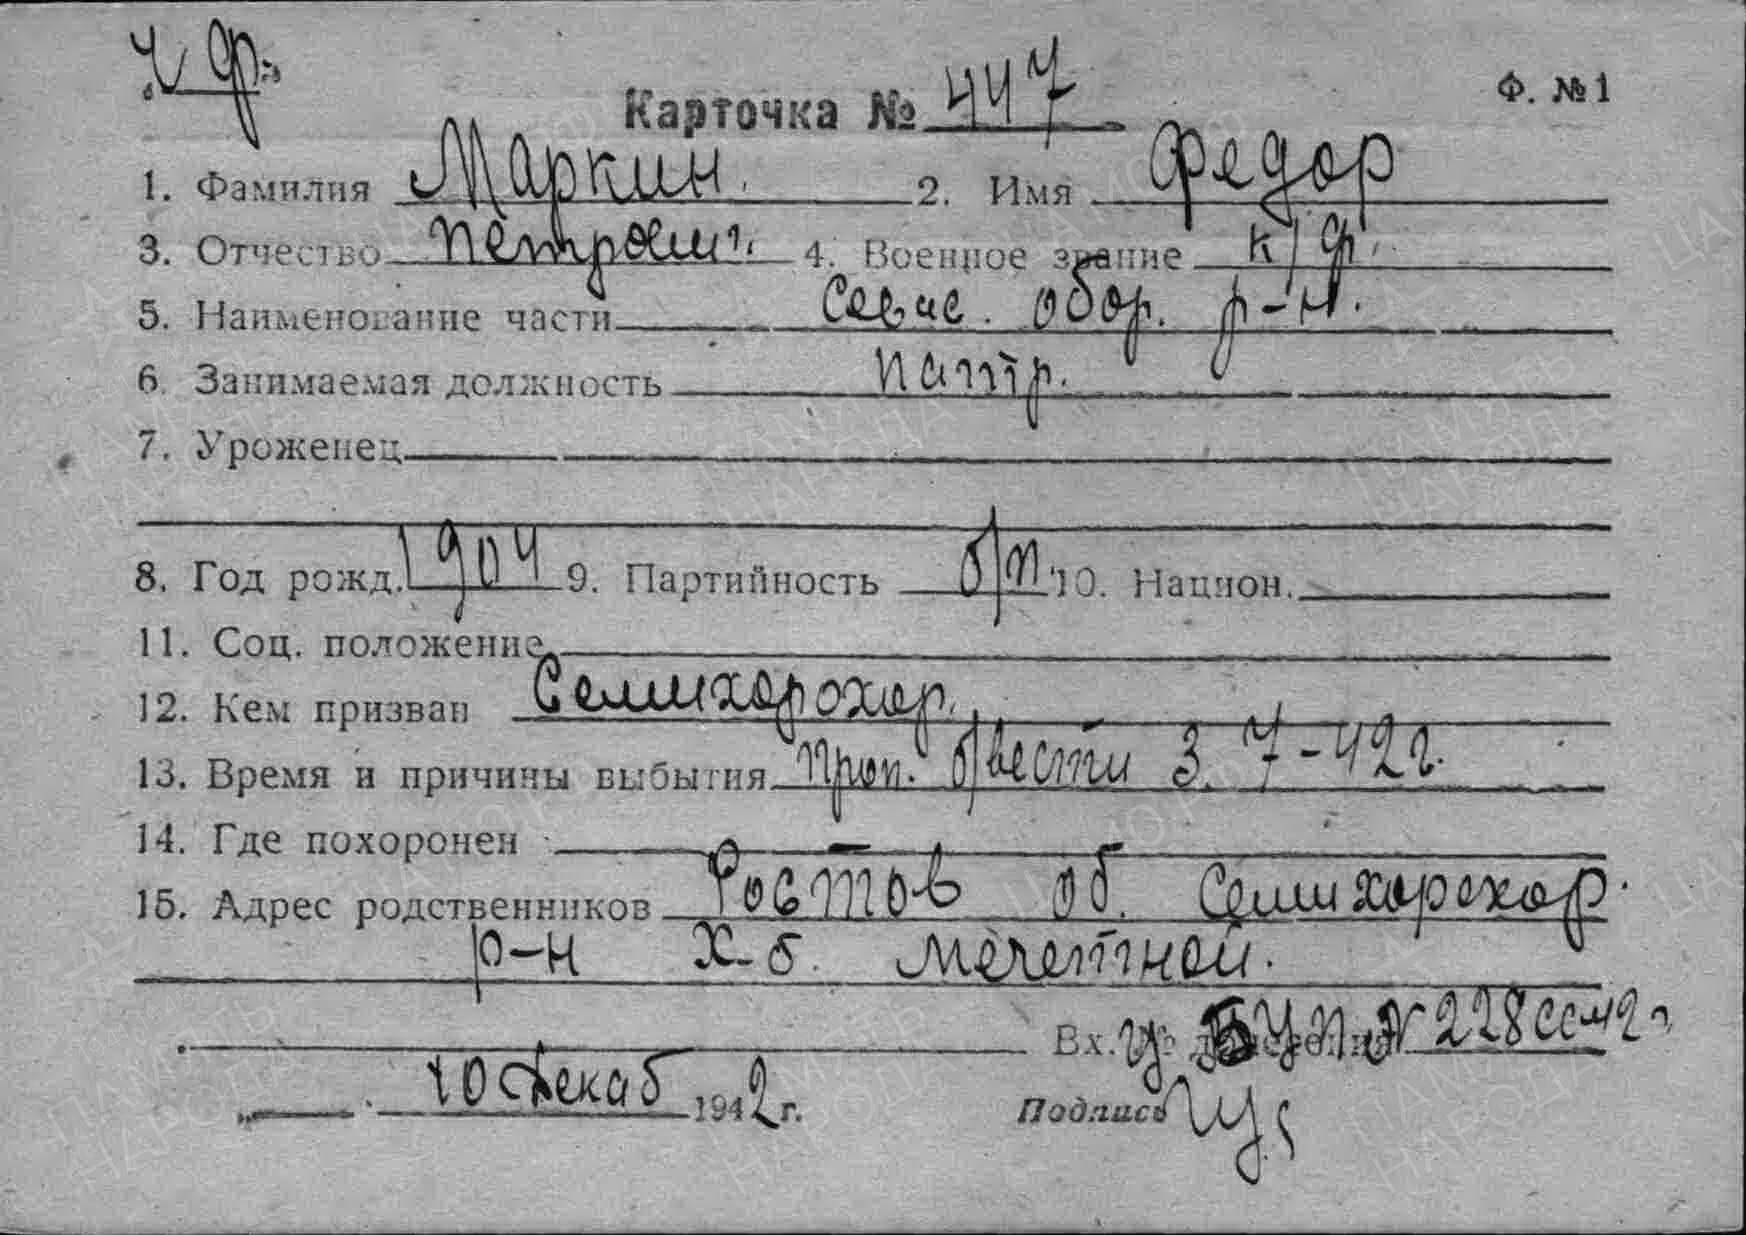 ч ф.
Карточка № 447 Ф. №1
1. Фамилия Маркин. 2. Имя Федор
3. Отчество Петрович. 4. Военное звание к/ф.
5. Наименование части Севас. обор. р-н.
6. Занимаемая должность патр.
7. Уроженец
8. Год рожд. 1904 9. Партийность б/п. 10. Национ.
11. Соц. положение
12. Кем призван Семихорохор.
13. Время и причины выбытия Проп. б/вести 3.7-42г.
14. Где похоронен
15. Адрес родственников Ростов об. Семихорохор.
р-н х-б. Мечетной.
Вх. № № 228сс 42г
10 Декаб 1942 г. Подпись